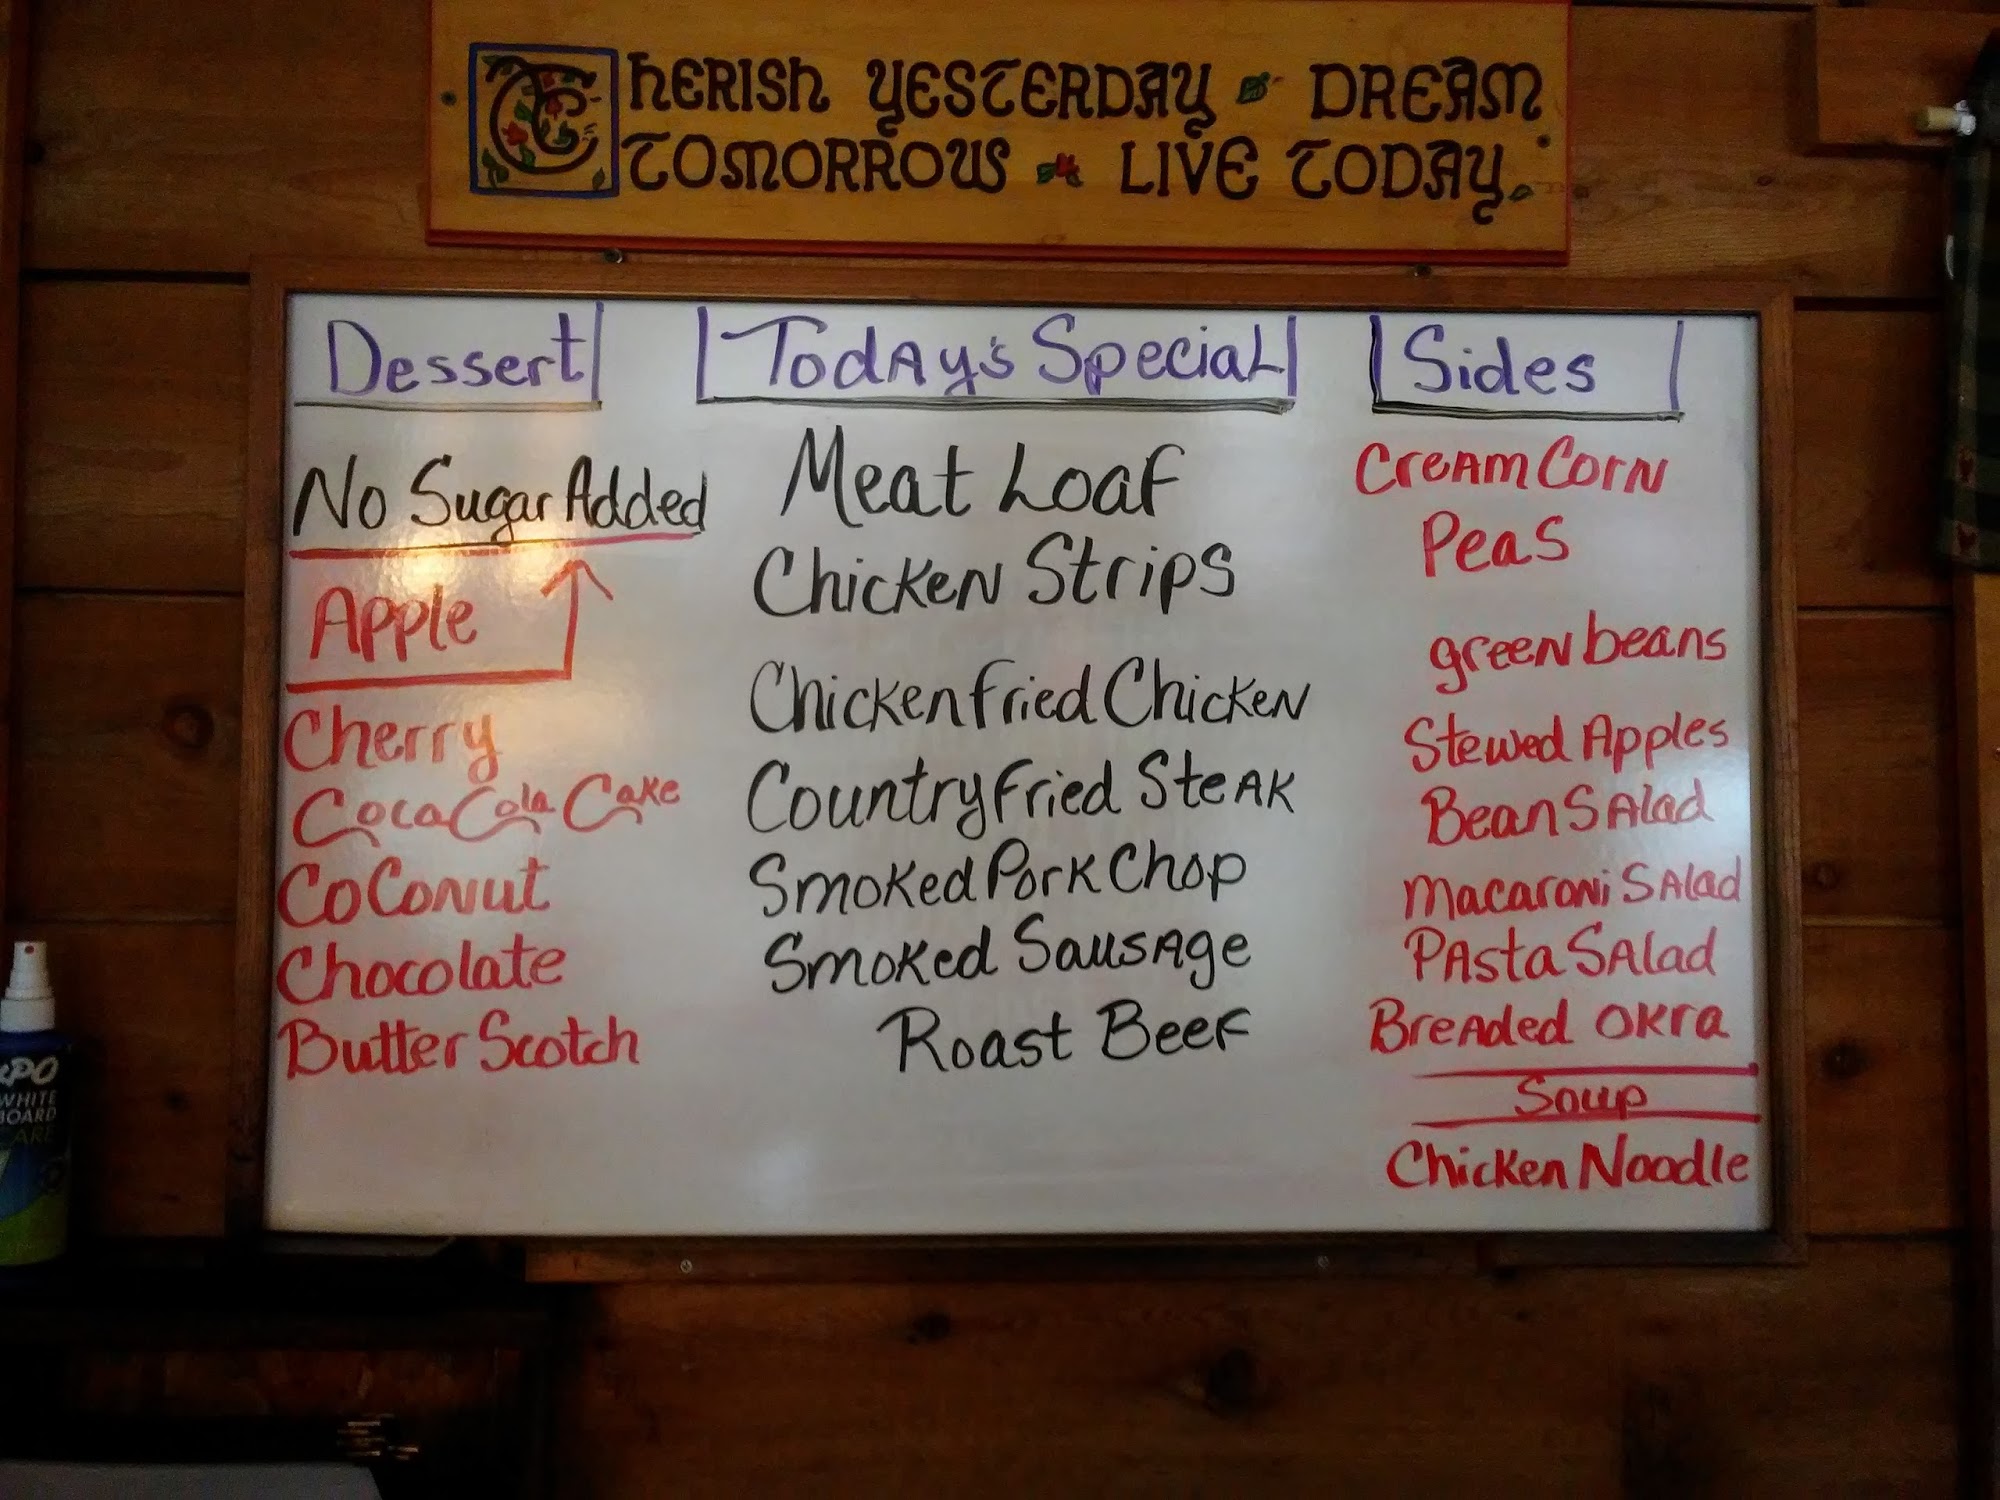 CHERISH YESTERDAY DREAM
TOMORROWS LIVE TODAY.
Dessert
No Sugar Added
Apple
Cherry
Coca Cola Cake
CoConut
Chocolate
Butter Scotch
Today's Special
Meat Loaf
Chicken Strips
Chicken fried Chicken
Country fried Steak
Smoked Pork Chop
Smoked Sausage
Roast Beef
Sides
Cream Corn
Peas
green beans
Stewed Apples
Bean Salad
Macaroni Salad
Pasta Salad
Breaded Okra
Soup
Chicken Noodle
WHITE
BOARD